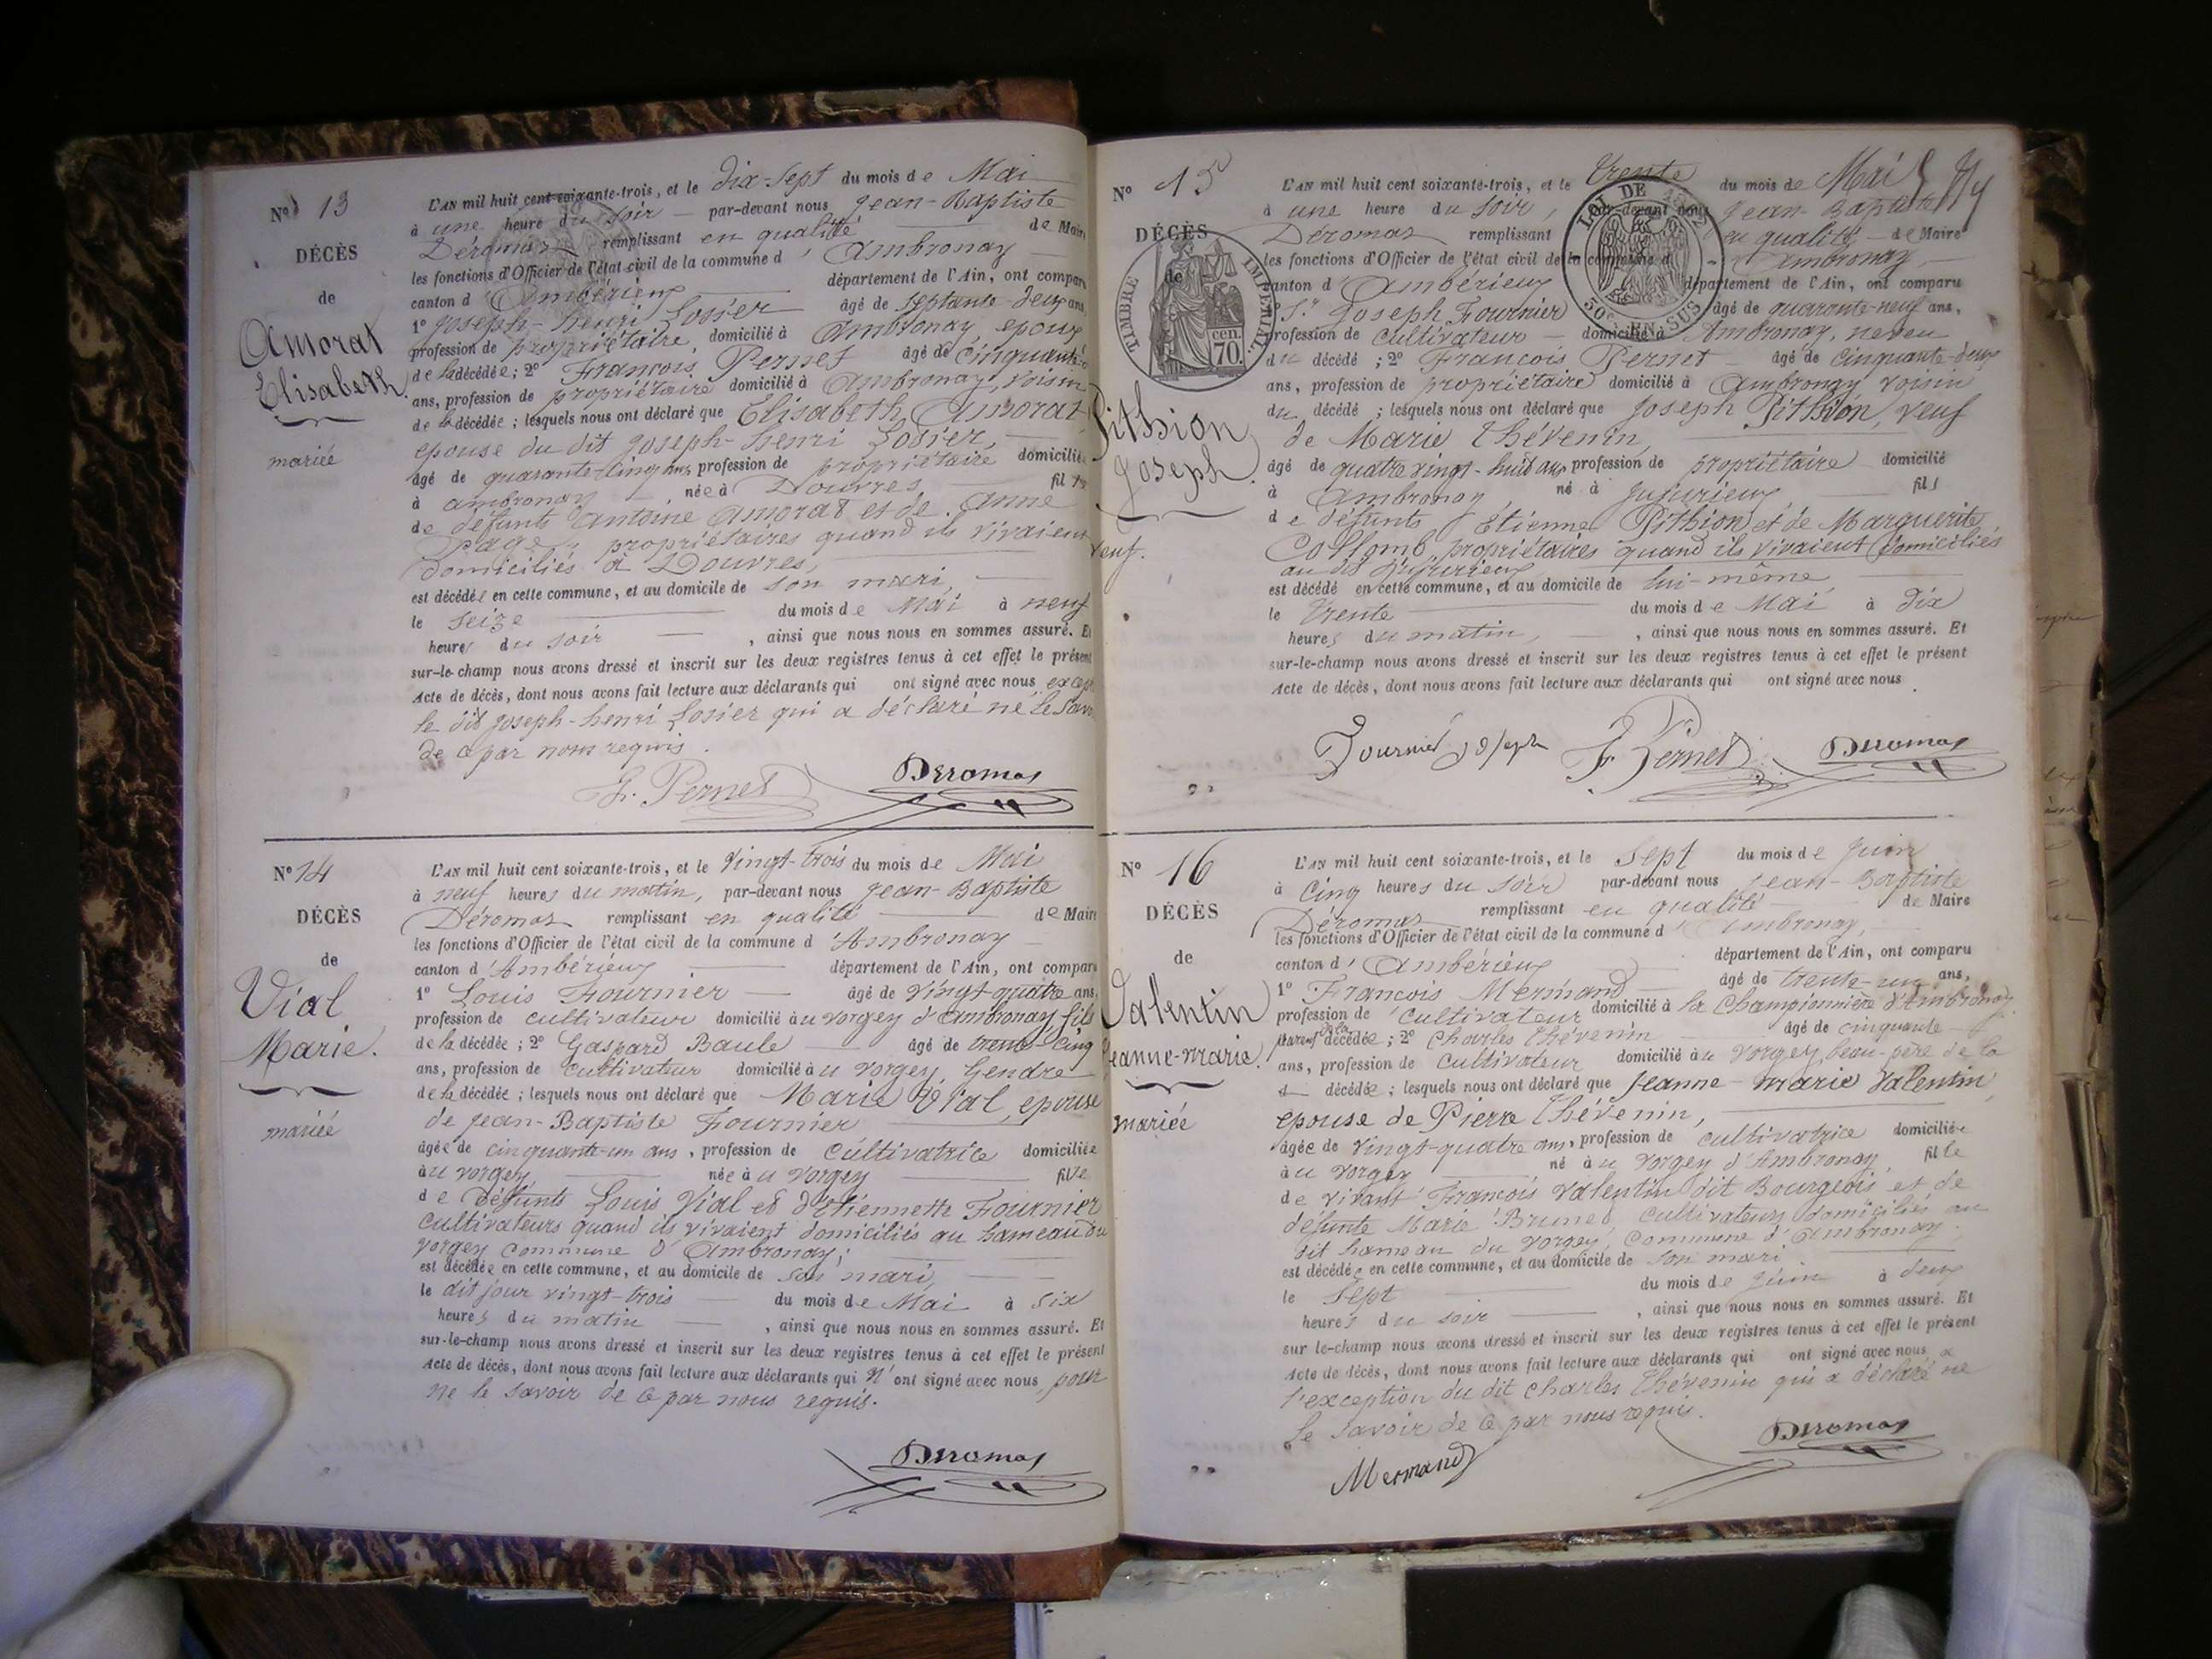 N° 13
DÉCÈS
de
Amorat
Elisabeth.
mariée
L'AN mil huit cent soixante-trois, et le dix-sept du mois de Mai
à une heure du soir par-devant nous Jean-Baptiste
Déromas remplissant en qualité de Maire
les fonctions d'Officier de l'état civil de la commune d'Ambronay
canton d'Ambérieux département de l'Ain, ont comparu
1° Joseph-henri Losier âgé de septante-deux ans,
profession de propriétaire, domicilié à Ambronay, epoux
de la décédée ; 2° François Pernet âgé de cinquante
ans, profession de propriétaire domicilié à Ambronay, voisin
de la décédée ; lesquels nous ont déclaré que Elisabeth Amorat
epouse du dit Joseph-henri Losier,
âgé de quarante-cinq ans, profession de propriétaire domiciliée
à ambronay née à Douvres fille
de défunts Antoine Amorat et de Anne
Page, propriétaires quand ils vivaient
domiciliés à Douvres,
est décédée en cette commune, et au domicile de son mari,
le seize du mois de Mai à neuf
heures du soir , ainsi que nous nous en sommes assuré. Et
sur-le-champ nous avons dressé et inscrit sur les deux registres tenus à cet effet le présent
Acte de décès, dont nous avons fait lecture aux déclarants qui ont signé avec nous except
le dit Joseph-henri Losier qui a déclaré ne le savoir
de ce par nous requis.
F. Pernet Deromas
N° 14
DÉCÈS
de
Vial
Marie.
mariée
L'AN mil huit cent soixante-trois, et le vingt-trois du mois de Mai
à neuf heures du matin, par-devant nous Jean-Baptiste
Déromas remplissant en qualité de Maire
les fonctions d'Officier de l'état civil de la commune d'Ambronay
canton d'Ambérieux département de l'Ain, ont comparu
1° Louis Fournier âgé de vingt-quatre ans,
profession de cultivateur domicilié au vorgey d'Ambronay, fils
de la décédée ; 2° Gaspard Baule âgé de trente-cinq
ans, profession de cultivateur domicilié au vorgey, Gendre
de la décédée ; lesquels nous ont déclaré que Marie Vial, epouse
de Jean-Baptiste Fournier
âgée de cinquante-un ans, profession de cultivatrice domiciliée
au vorgey née au vorgey fille
de défunts Louis Vial et d'Etiennette Fournier
cultivateurs quand ils vivaient domiciliés au hameau du
vorgey commune d'Ambronay,
est décédée en cette commune, et au domicile de son mari,
le dit jour vingt-trois du mois de Mai à six
heures du matin , ainsi que nous nous en sommes assuré. Et
sur-le-champ nous avons dressé et inscrit sur les deux registres tenus à cet effet le présent
Acte de décès, dont nous avons fait lecture aux déclarants qui n'ont signé avec nous, pour
ne le savoir de ce par nous requis.
Deromas
N° 15
DÉCÈS
de
TIMBRE IMPÉRIAL
70 cen.
LOI DE 1862
50c EN SUS
Pithion
Joseph.
veuf.
L'AN mil huit cent soixante-trois, et le trente du mois de Mai
à une heure du soir, par-devant nous Jean-Baptiste
Déromas remplissant en qualité de Maire
les fonctions d'Officier de l'état civil de la commune d'Ambronay
canton d'Ambérieux département de l'Ain, ont comparu
1° Sr Joseph Fournier âgé de quarante-neuf ans,
profession de cultivateur domicilié à Ambronay, neveu
du décédé ; 2° François Pernet âgé de cinquante-deux
ans, profession de propriétaire domicilié à Ambronay voisin
du décédé ; lesquels nous ont déclaré que Joseph Pithion, veuf
de Marie Thévenin,
âgé de quatre vingt-huit ans profession de propriétaire domicilié
à Ambronay né à Jujurieux fils
de défunts Étienne Pithion et de Marguerite
Collomb, propriétaires quand ils vivaient domiciliés
au dit Jujurieux
est décédé en cette commune, et au domicile de lui-même
le trente du mois de Mai à dix
heures du matin, , ainsi que nous nous en sommes assuré. Et
sur-le-champ nous avons dressé et inscrit sur les deux registres tenus à cet effet le présent
Acte de décès, dont nous avons fait lecture aux déclarants qui ont signé avec nous
Fournier Joseph F. Pernet Deromas
N° 16
DÉCÈS
de
Valentin
Jeanne-marie.
mariée
L'AN mil huit cent soixante-trois, et le sept du mois de Juin
à cinq heures du soir par-devant nous Jean-Baptiste
Déromas remplissant en qualité de Maire
les fonctions d'Officier de l'état civil de la commune d'Ambronay,
canton d'Ambérieux département de l'Ain, ont comparu
1° François Mermand âgé de trente-un ans,
profession de cultivateur domicilié à la Championnière d'Ambronay
parent de la décédée ; 2° Charles Thévenin âgé de cinquante
ans, profession de cultivateur domicilié au vorgey, beau-père de la
décédée ; lesquels nous ont déclaré que Jeanne-marie Valentin,
epouse de Pierre Thévenin,
âgée de vingt-quatre ans, profession de cultivatrice domiciliée
au vorgey né au vorgey d'Ambronay, fille
de vivant François Valentin dit Bourgeois et de
défunte Marie Brunet cultivateurs domiciliés au
dit hameau du vorgey, commune d'Ambronay,
est décédée en cette commune, et au domicile de son mari
le sept du mois de Juin à deux
heures du soir , ainsi que nous nous en sommes assuré. Et
sur le-champ nous avons dressé et inscrit sur les deux registres tenus à cet effet le présent
Acte de décès, dont nous avons fait lecture aux déclarants qui ont signé avec nous a
l'exception du dit Charles Thévenin qui a déclaré ne
le savoir de ce par nous requis.
Mermand Deromas